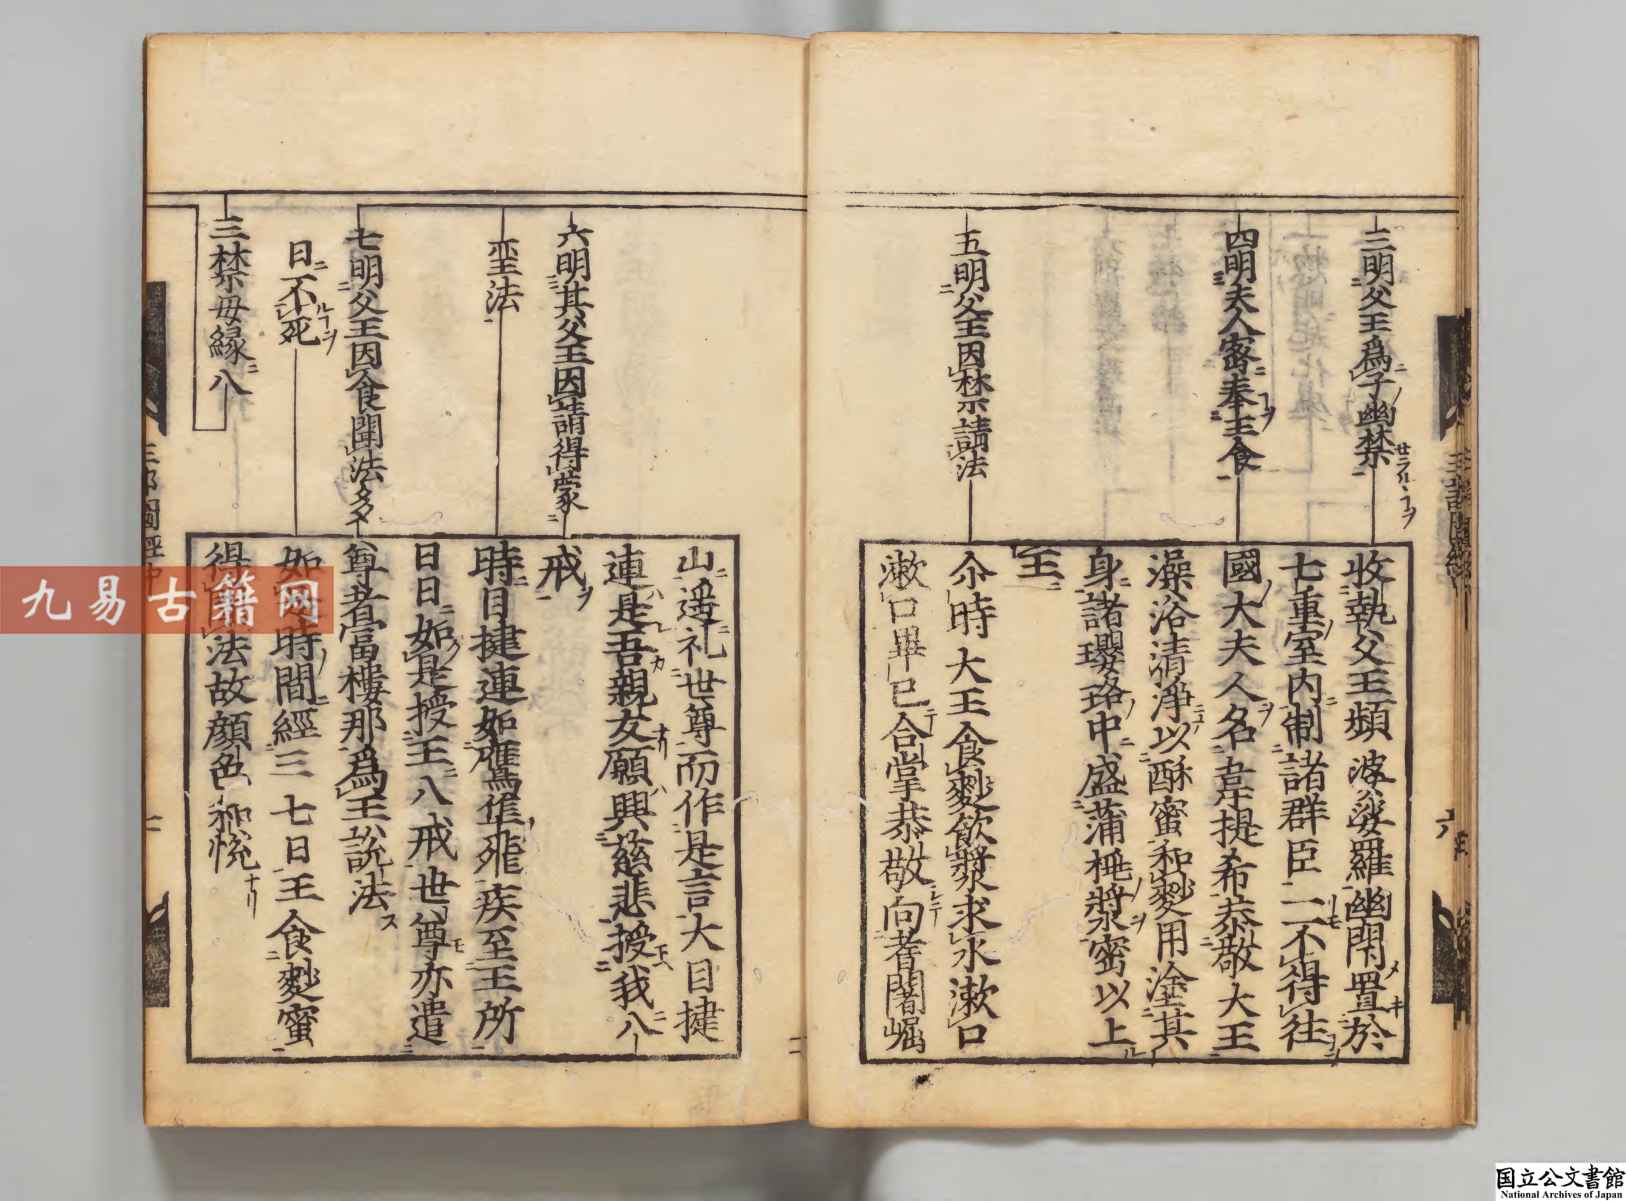 三明父王爲子幽禁
四明夫人密奉王食
五明父王因禁請法
收執父王頻波娑羅幽閇置於
七重室内制諸群臣一二不得往
國大夫人名韋提希恭敬大王
澡浴清淨以酥蜜和麨用塗其
身諸瓔珞中盛蒲桃漿密以上
王
尒時大王食麨飲漿求水漱口
漱口畢已合掌恭敬向耆闍崛
六明其父王因請得蒙
垩法
七明父王因食聞法多
日不死
三禁母縁八
山遥礼世尊而作是言大目揵
連是吾親友願興慈悲授我八
戒
時目揵連如鷹隼飛疾至王所
日日如是授王八戒世尊亦遣
尊者富樓那爲王説法
如是時間經三七日王食麨蜜
得聞法故顔色和悦
九易古籍网
国立公文書館
National Archives of Japan